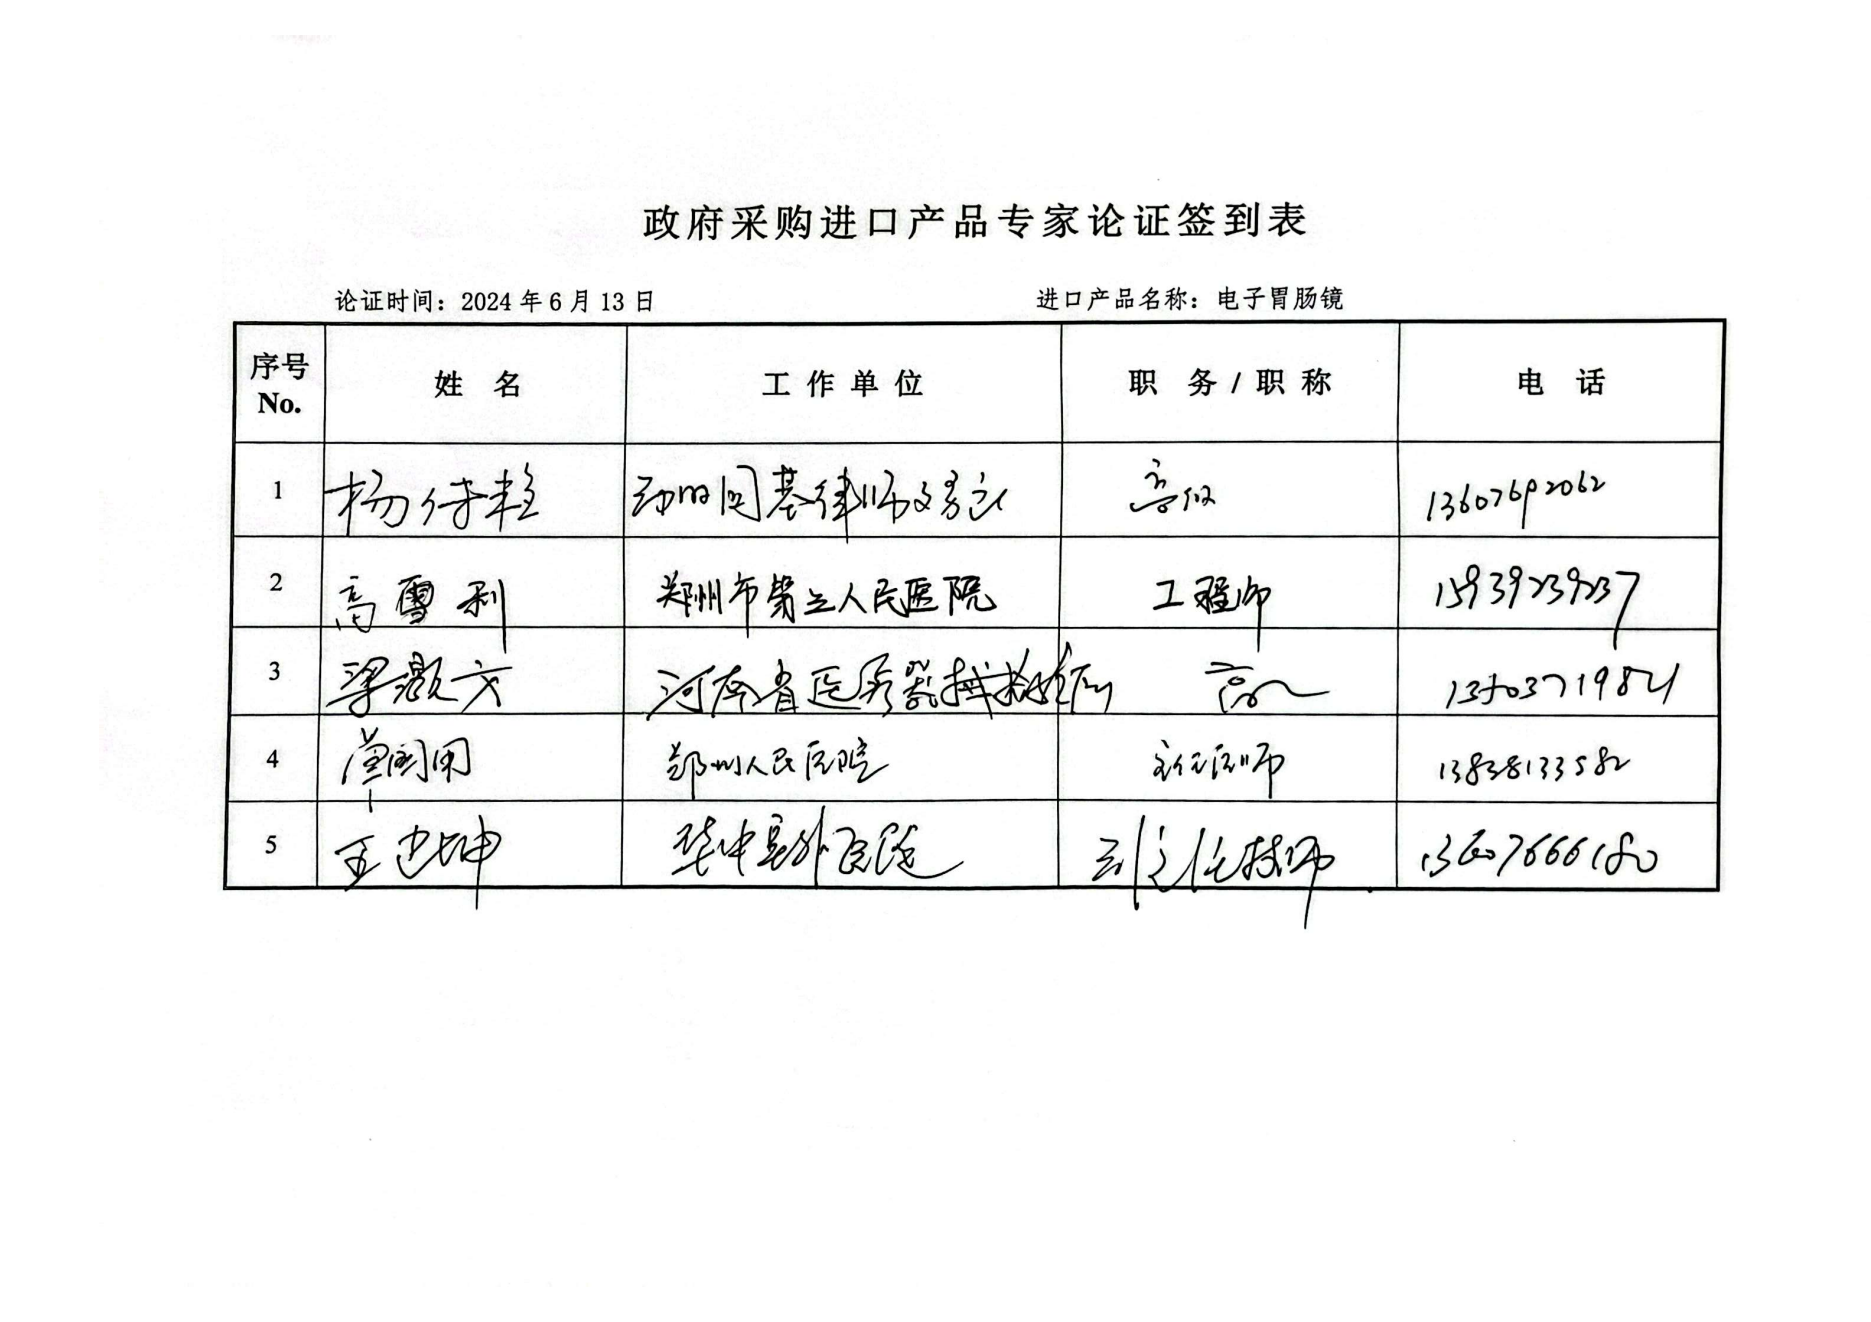 政府采购进口产品专家论证签到表
论证时间：2024年6月13日 进口产品名称：电子胃肠镜
序号 No. 姓 名 工作单位 职 务/职称 电 话
1 杨 基律师 高级 13607692062
2 高雪利 郑州市第三人民医院 工程师 15939239237
3 梁灏方 河南省医疗器械检验所 高工 13503719821
4 郑州人民医院 主任医师 13838133582
5 王 坤 华中阜外医院 副主任技师 13607666180